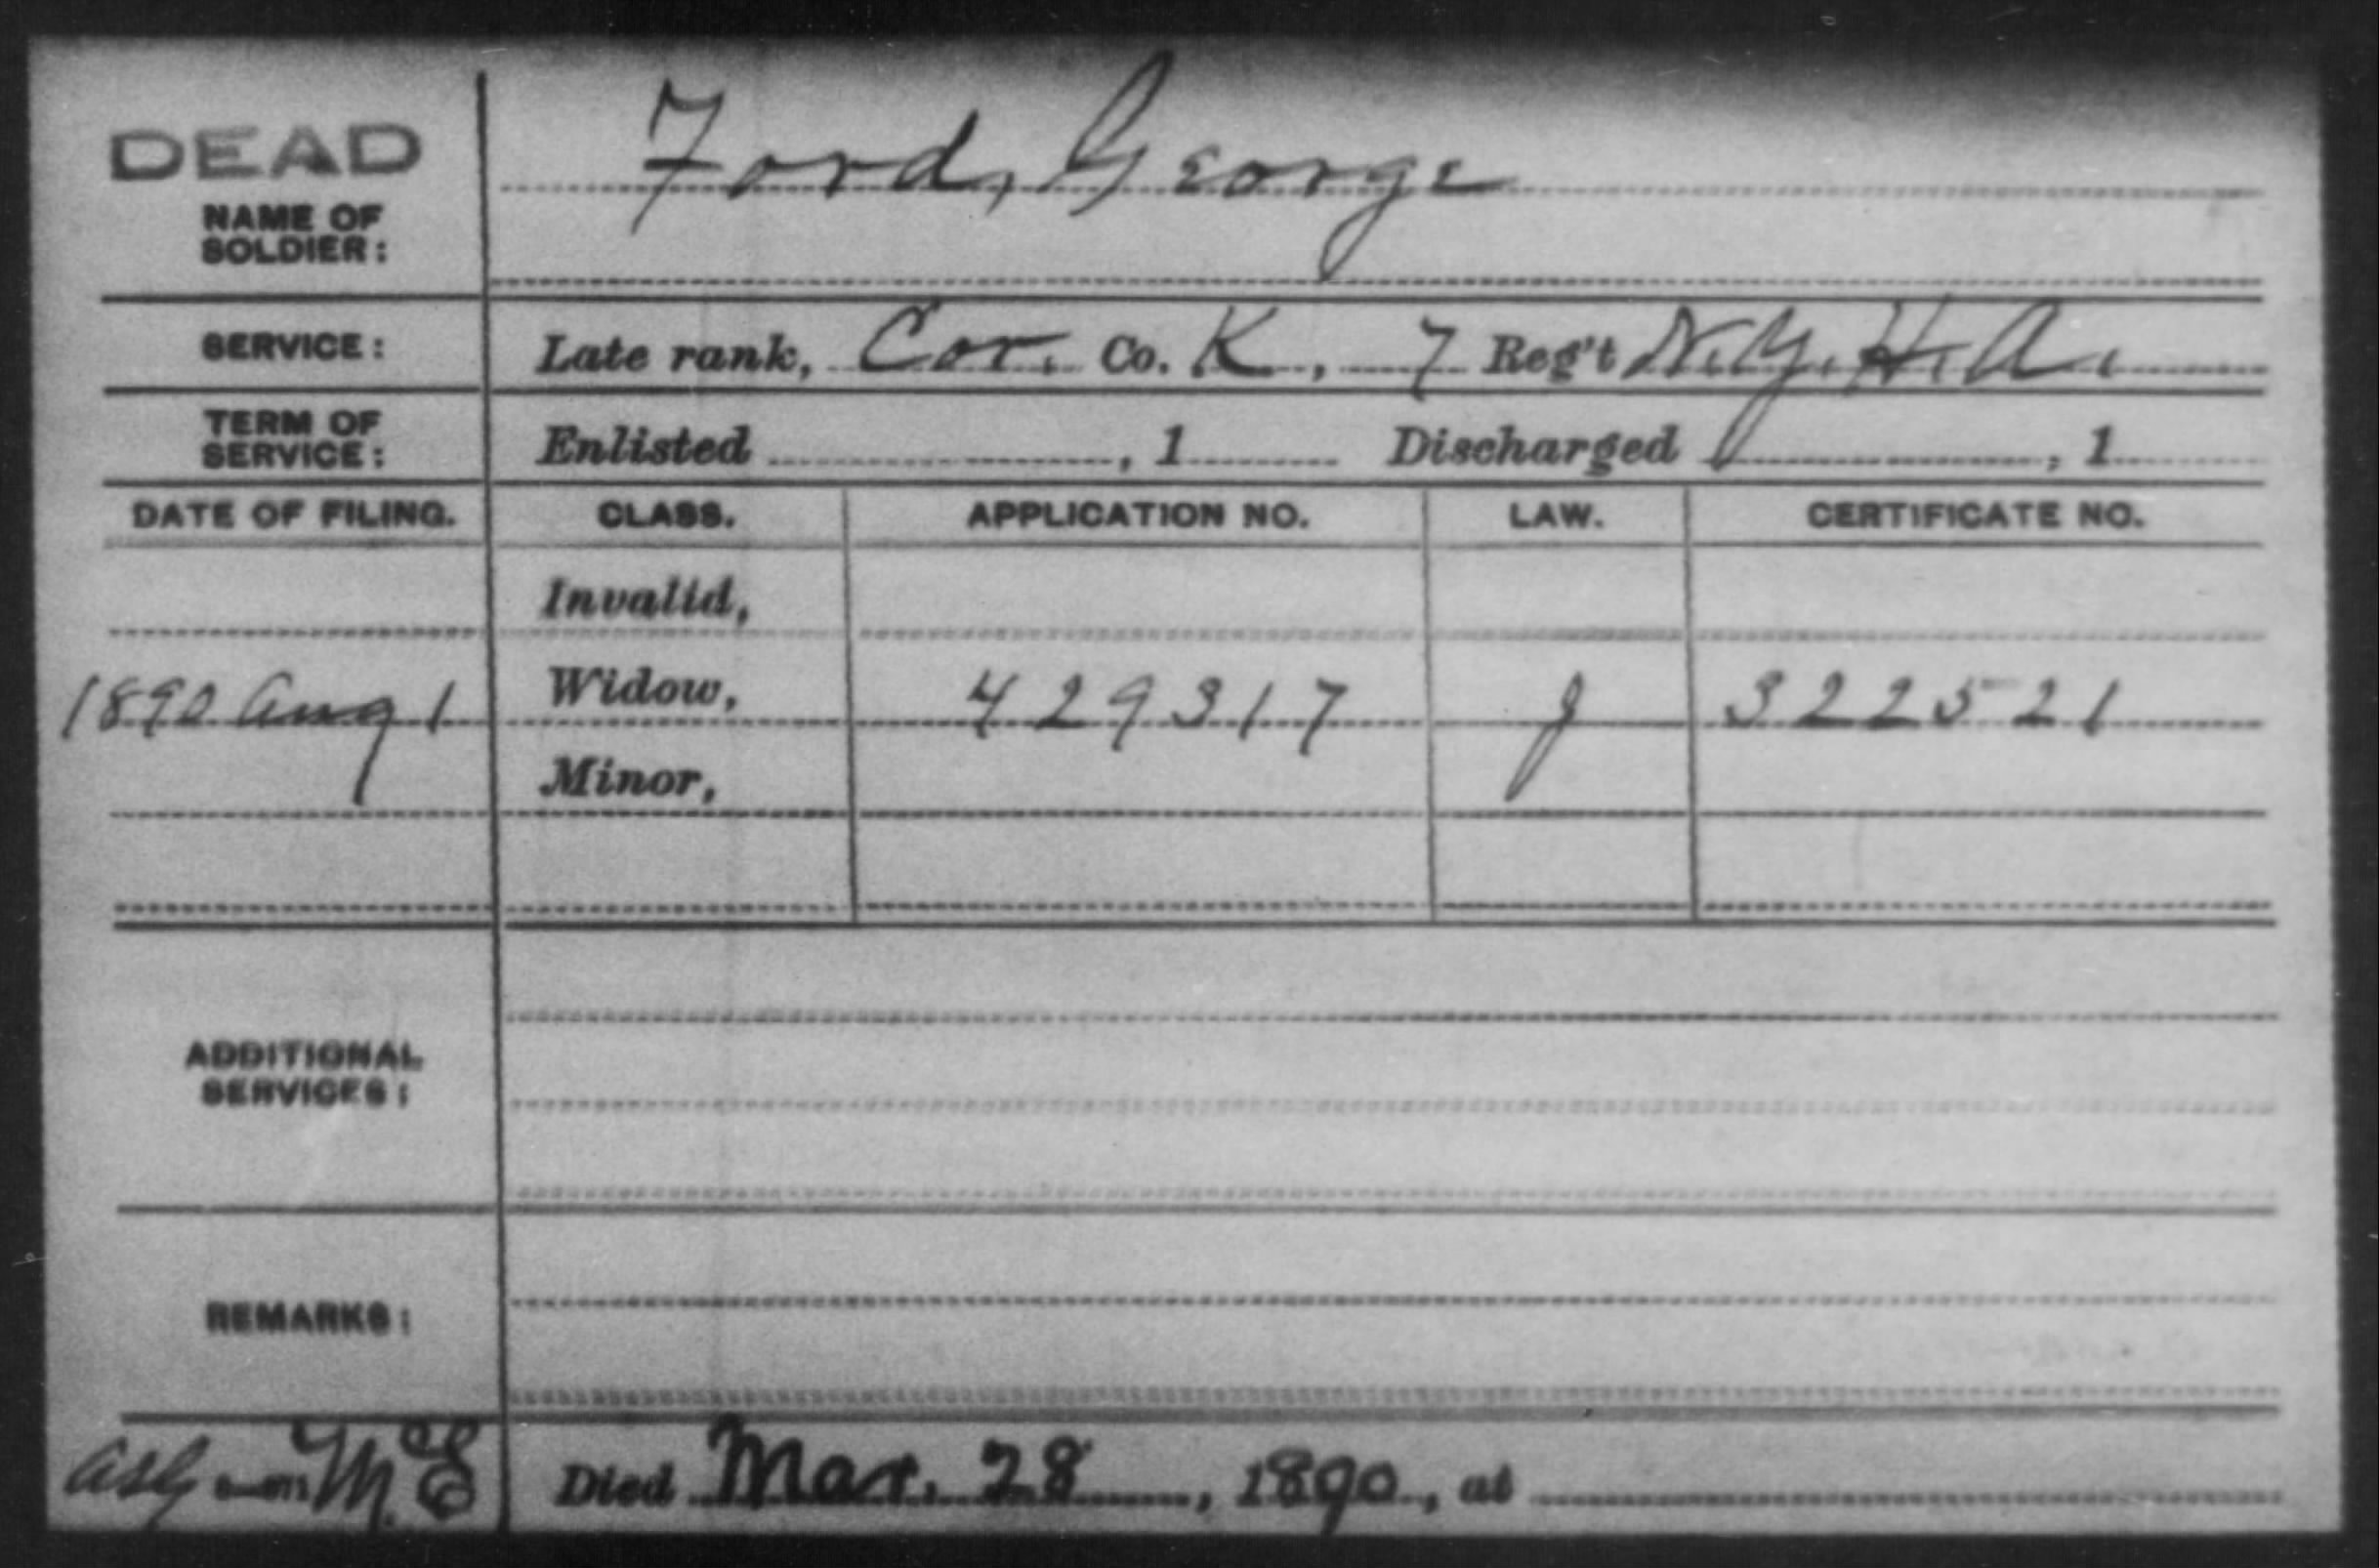 DEAD
Ford, George
NAME OF
SOLDIER:
SERVICE: Late rank, Cor. Co. K, 7 Reg't N.Y.H.A.
TERM OF
SERVICE: Enlisted , 1 Discharged , 1
DATE OF FILING. CLASS. APPLICATION NO. LAW. CERTIFICATE NO.
Invalid,
1890 Aug 1 Widow, 429317 J 322521
Minor,
ADDITIONAL
SERVICES:
REMARKS:
Died Mar. 28, 1890, at